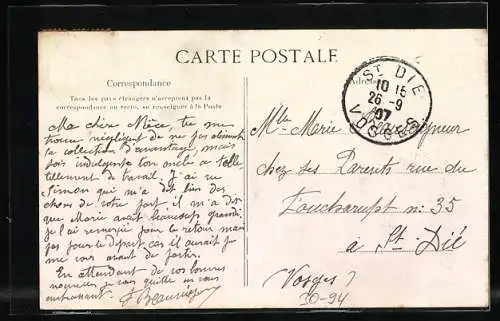 CARTE POSTALE
Correspondance
Tous les pays étrangers n'acceptent pas la
correspondance au recto, se renseigner à la Poste
Adresse
ST DIÉ
10 15
26 -9
07
VOSGES
Ma chère tu me
trouve négligent de ne pas alimenter
ta collection d'avantage, mais
sois indulgente ton oncle a
tellement de travail. J'ai vu
Simon qui m'a dit bien des
choses de votre part, il m'a dit
que Marie avait beaucoup grandi
je l'ai remercié pour le retour mais
pas pour le départ car il aurait
me voir avant de partir.
En attendant de vos bonnes
nouvelles je vous quitte en vous
embrassant.
Mlle Marie
chez ses Parents rue du
n: 35
à St Dié
Vosges
30-94